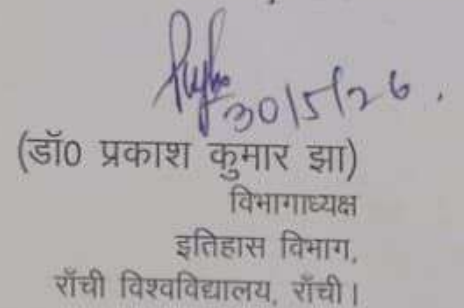 30/5/26.
(डॉ0 प्रकाश कुमार झा)
विभागाध्यक्ष
इतिहास विभाग,
राँची विश्वविद्यालय, राँची।